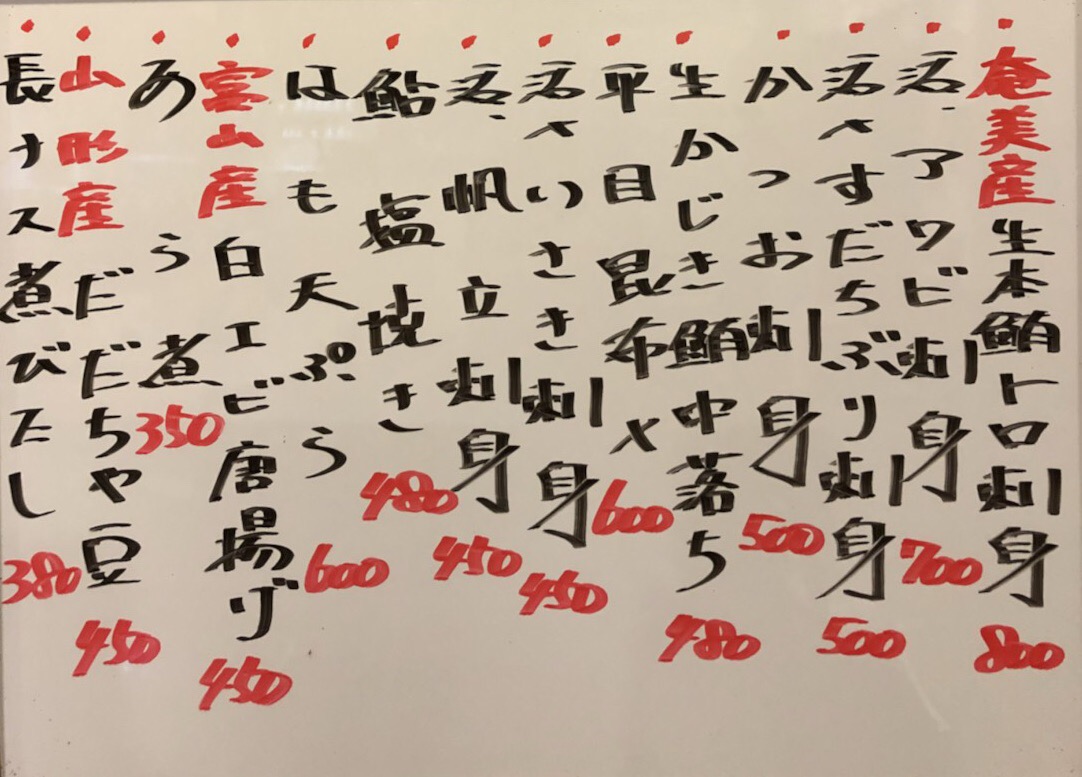 奄美産生本鮪トロ刺身 800
活〆アワビ刺身 700
活〆すだちぶり刺身 500
かつお刺身 500
生かじき鮪中落ち 480
平目昆布〆 600
活〆いさき刺身 450
活〆帆立刺身 450
鮎塩焼き 480
はも天ぷら 600
富山産白エビ唐揚げ 450
あら煮 350
山形産だだちゃ豆 450
長ナス煮びたし 380